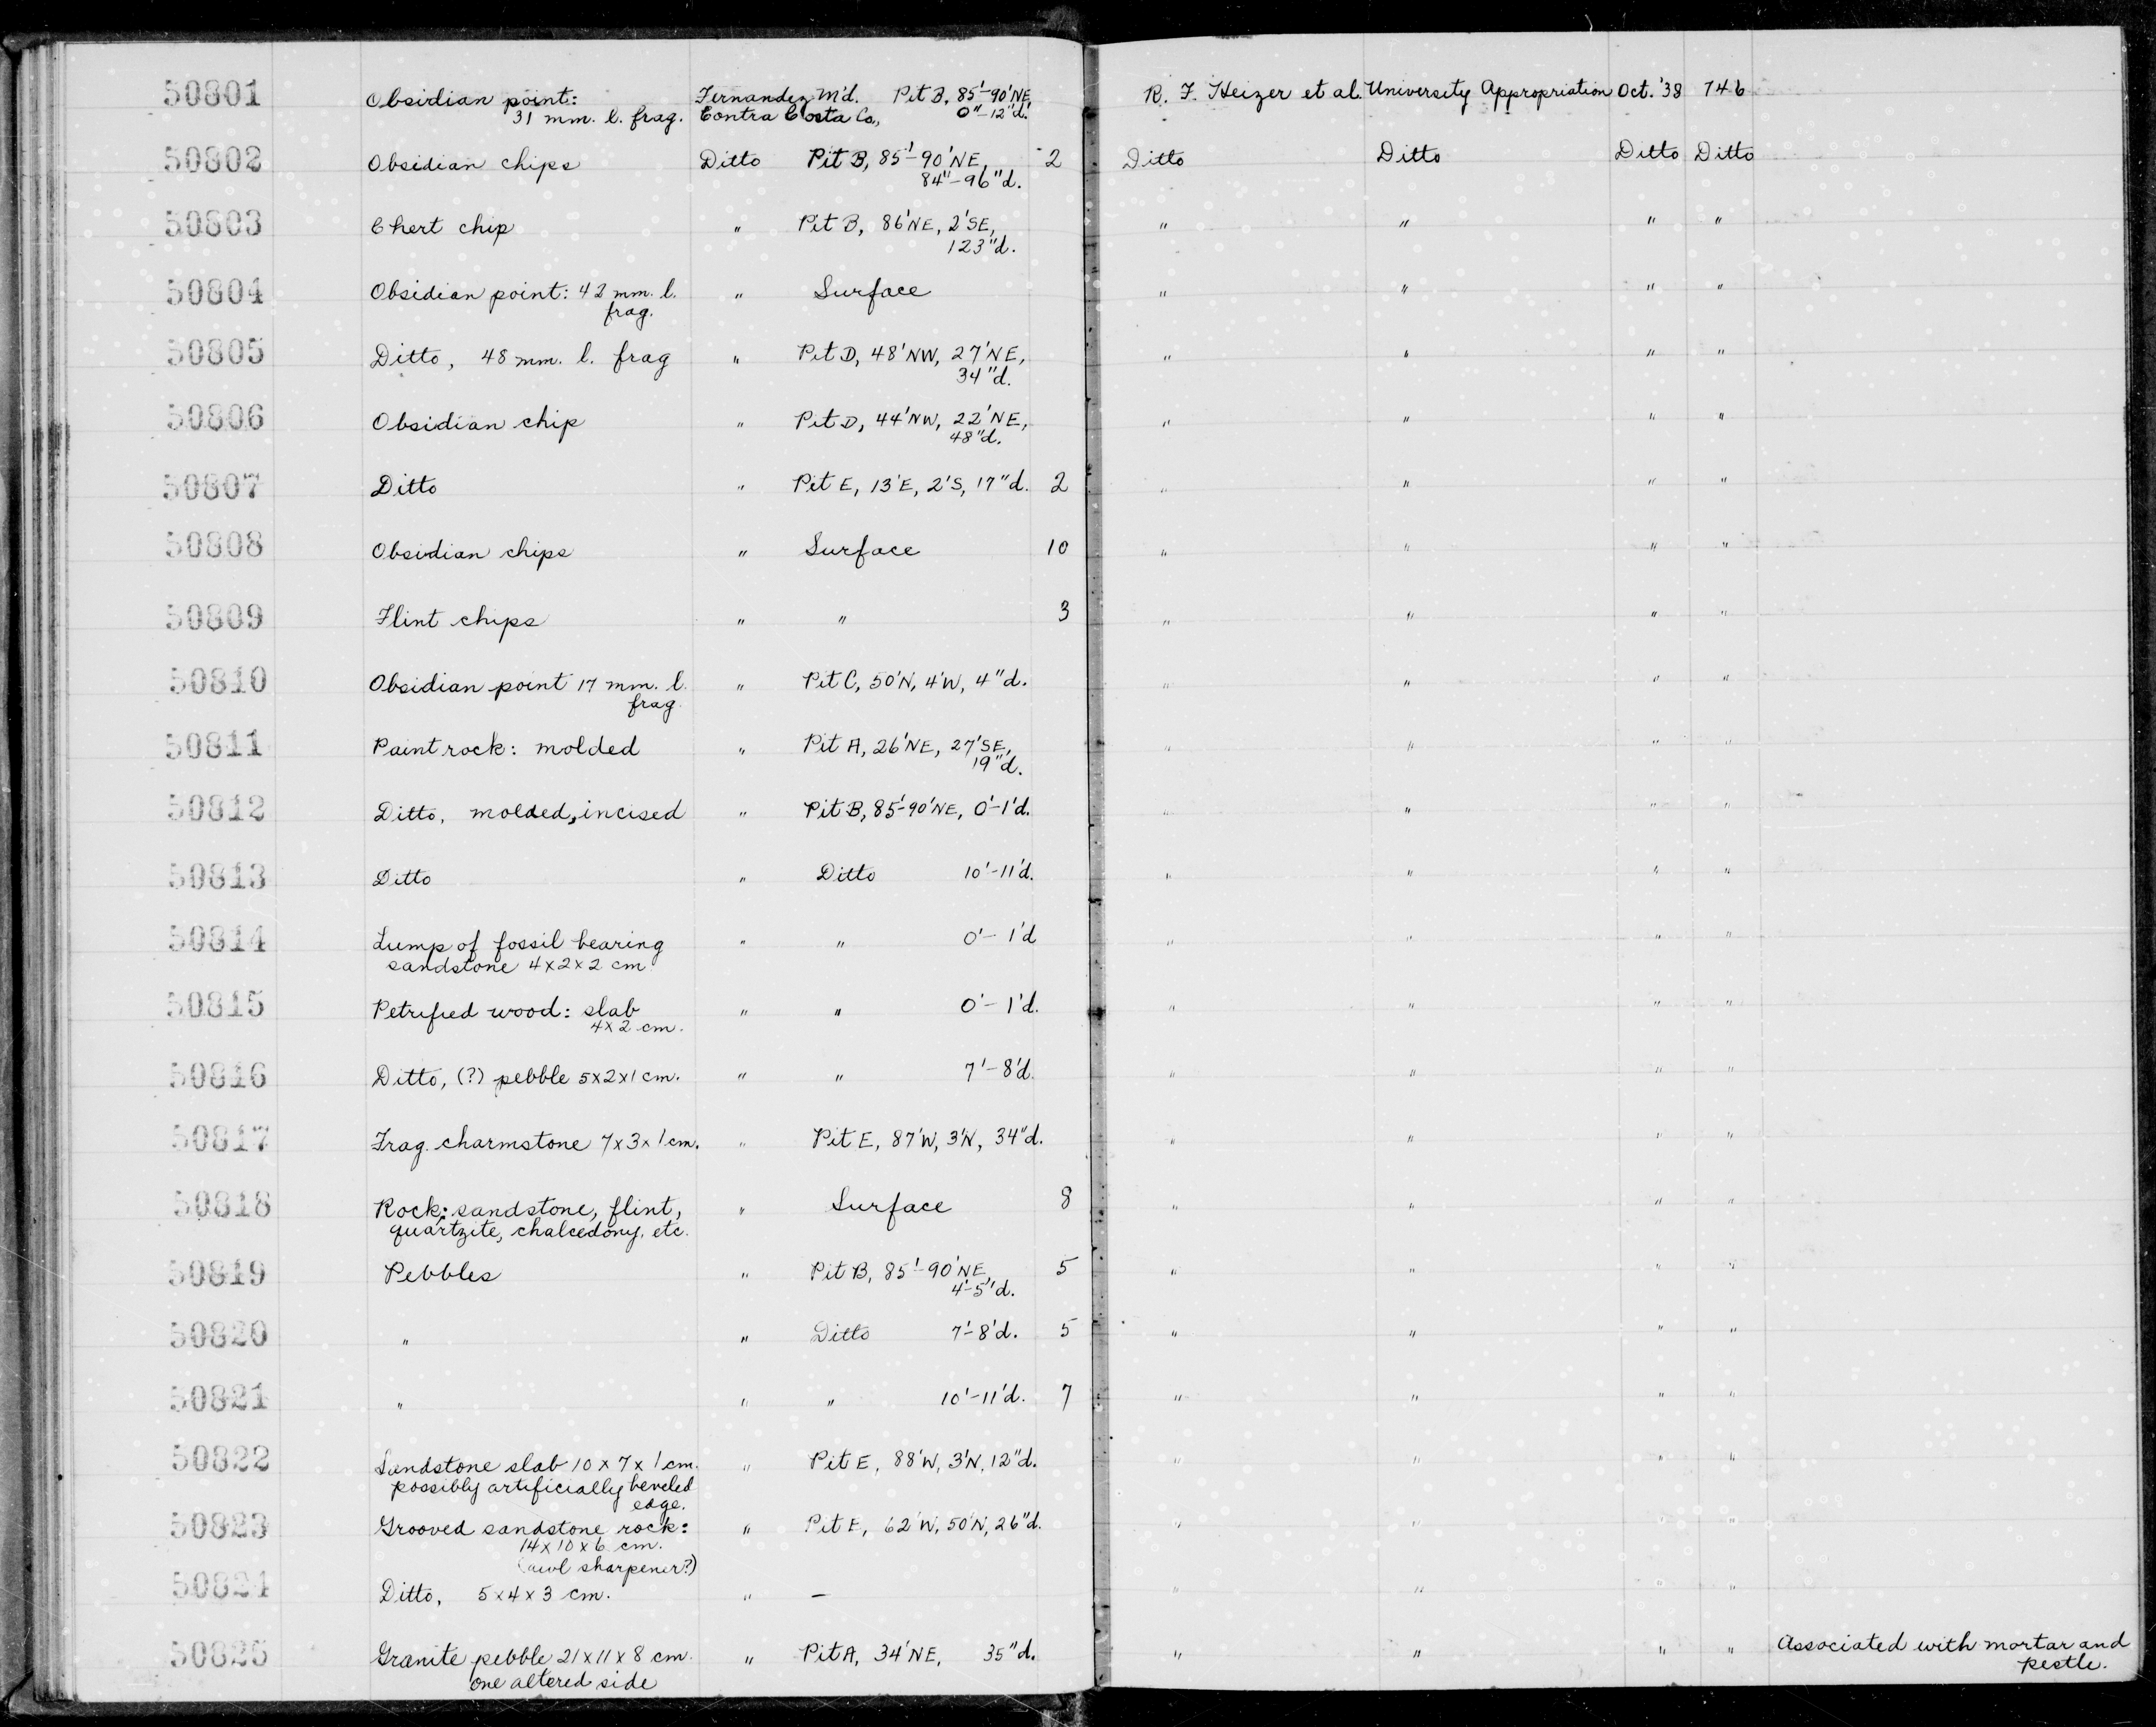 50801 Obsidian point: Fernandez M'd. Pit B, 85'-90'NE R. F. Heizer et al. University Appropriation Oct. '38 746
31 mm. l. frag. Contra Costa Co., 0"-12"d.
50802 Obsidian chips Ditto Pit B, 85'-90'NE, 2 Ditto Ditto Ditto Ditto
84"-96"d.
50803 Chert chip " Pit B, 86'NE, 2'SE, " " " "
123"d.
50804 Obsidian point: 42 mm. l. " Surface " " " "
frag.
50805 Ditto, 48 mm. l. frag " Pit D, 48'NW, 27'NE, " " " "
34"d.
50806 Obsidian chip " Pit D, 44'NW, 22'NE, " " " "
48"d.
50807 Ditto " Pit E, 13'E, 2'S, 17"d. 2 " " " "
50808 Obsidian chips " Surface 10 " " " "
50809 Flint chips " " 3 " " " "
50810 Obsidian point 17 mm. l. " Pit C, 50'N, 4'W, 4"d. " " " "
frag.
50811 Paint rock: molded " Pit A, 26'NE, 27'SE, " " " "
19"d.
50812 Ditto, molded, incised " Pit B, 85'-90'NE, 0'-1'd. " " " "
50813 Ditto " Ditto 10'-11'd. " " " "
50814 Lump of fossil bearing " " 0'-1'd " " " "
sandstone 4x2x2 cm.
50815 Petrified wood: slab " " 0'-1'd. " " " "
4x2 cm.
50816 Ditto, (?) pebble 5x2x1 cm. " " 7'-8'd. " " " "
50817 Frag. charmstone 7x3x1 cm. " Pit E, 87'W, 3'N, 34"d. " " " "
50818 Rock: sandstone, flint, " Surface 8 " " " "
quartzite, chalcedony, etc.
50819 Pebbles " Pit B, 85'-90'NE, 5 " " " "
4'-5'd.
50820 " " Ditto 7'-8'd. 5 " " " "
50821 " " " 10'-11'd. 7 " " " "
50822 Sandstone slab 10 x 7 x 1 cm. " Pit E, 88'W, 3'N, 12"d. " " " "
possibly artificially beveled
edge.
50823 Grooved sandstone rock: " Pit E, 62'W, 50'N, 26"d. " " " "
14x10x6 cm.
(awl sharpener?)
50824 Ditto, 5x4x3 cm. " – " " " "
50825 Granite pebble 21x11x8 cm. " Pit A, 34'NE, 35"d. " " " " Associated with mortar and
one altered side pestle.